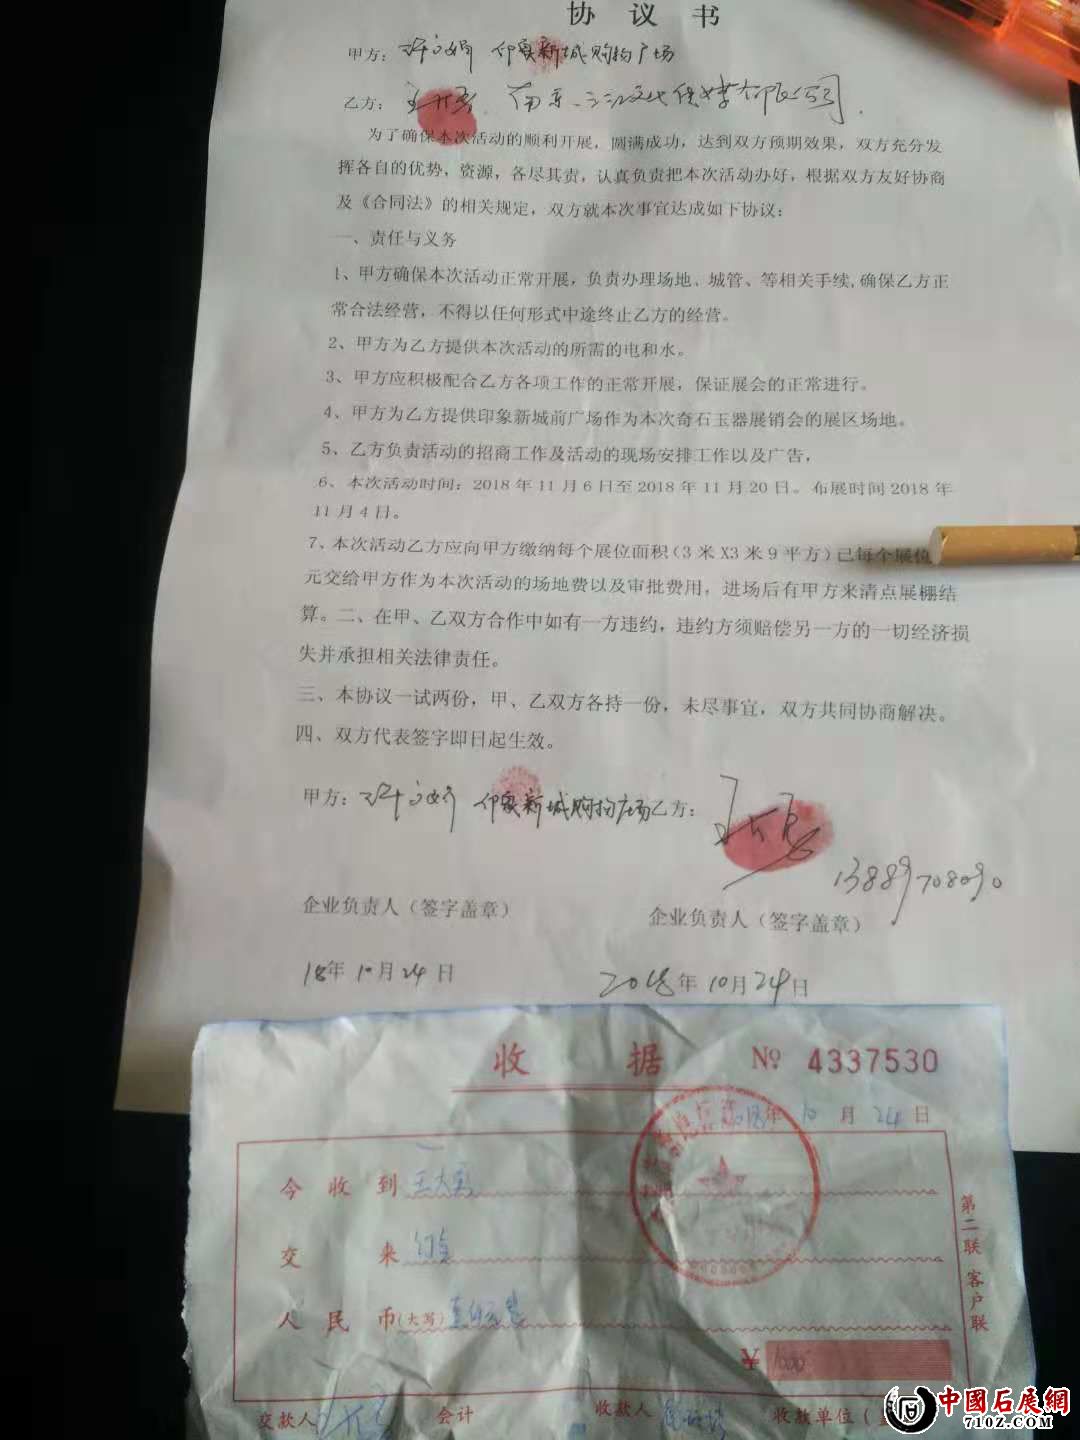 协 议 书
甲方： 印象新城购物广场
乙方： 文化传媒有限公司
为了确保本次活动的顺利开展，圆满成功，达到双方预期效果，双方充分发
挥各自的优势，资源，各尽其责，认真负责把本次活动办好，根据双方友好协商
及《合同法》的相关规定，双方就本次事宜达成如下协议：
一、责任与义务
1、甲方确保本次活动正常开展，负责办理场地、城管、等相关手续,确保乙方正
常合法经营，不得以任何形式中途终止乙方的经营。
2、甲方为乙方提供本次活动的所需的电和水。
3、甲方应积极配合乙方各项工作的正常开展，保证展会的正常进行。
4、甲方为乙方提供印象新城前广场作为本次奇石玉器展销会的展区场地。
5、乙方负责活动的招商工作及活动的现场安排工作以及广告，
6、本次活动时间：2018年11月6日至2018年11月20日。布展时间2018年
11月4日。
7、本次活动乙方应向甲方缴纳每个展位面积（3米X3米9平方）已每个展位
元交给甲方作为本次活动的场地费以及审批费用，进场后有甲方来清点展棚结
算。二、在甲、乙双方合作中如有一方违约，违约方须赔偿另一方的一切经济损
失并承担相关法律责任。
三、本协议一试两份，甲、乙双方各持一份，未尽事宜，双方共同协商解决。
四、双方代表签字即日起生效。
甲方： 印象新城购物广场 乙方：
13889708090
企业负责人（签字盖章） 企业负责人（签字盖章）
18年10月24日 2018年10月24日
收 据 № 4337530
年 10 月 24 日
今 收 到
交 来 订金
人 民 币(大写)
¥ 1000
第二联 客户联
交款人 会计 收款人 收款单位（
中國石展網
7102.COM